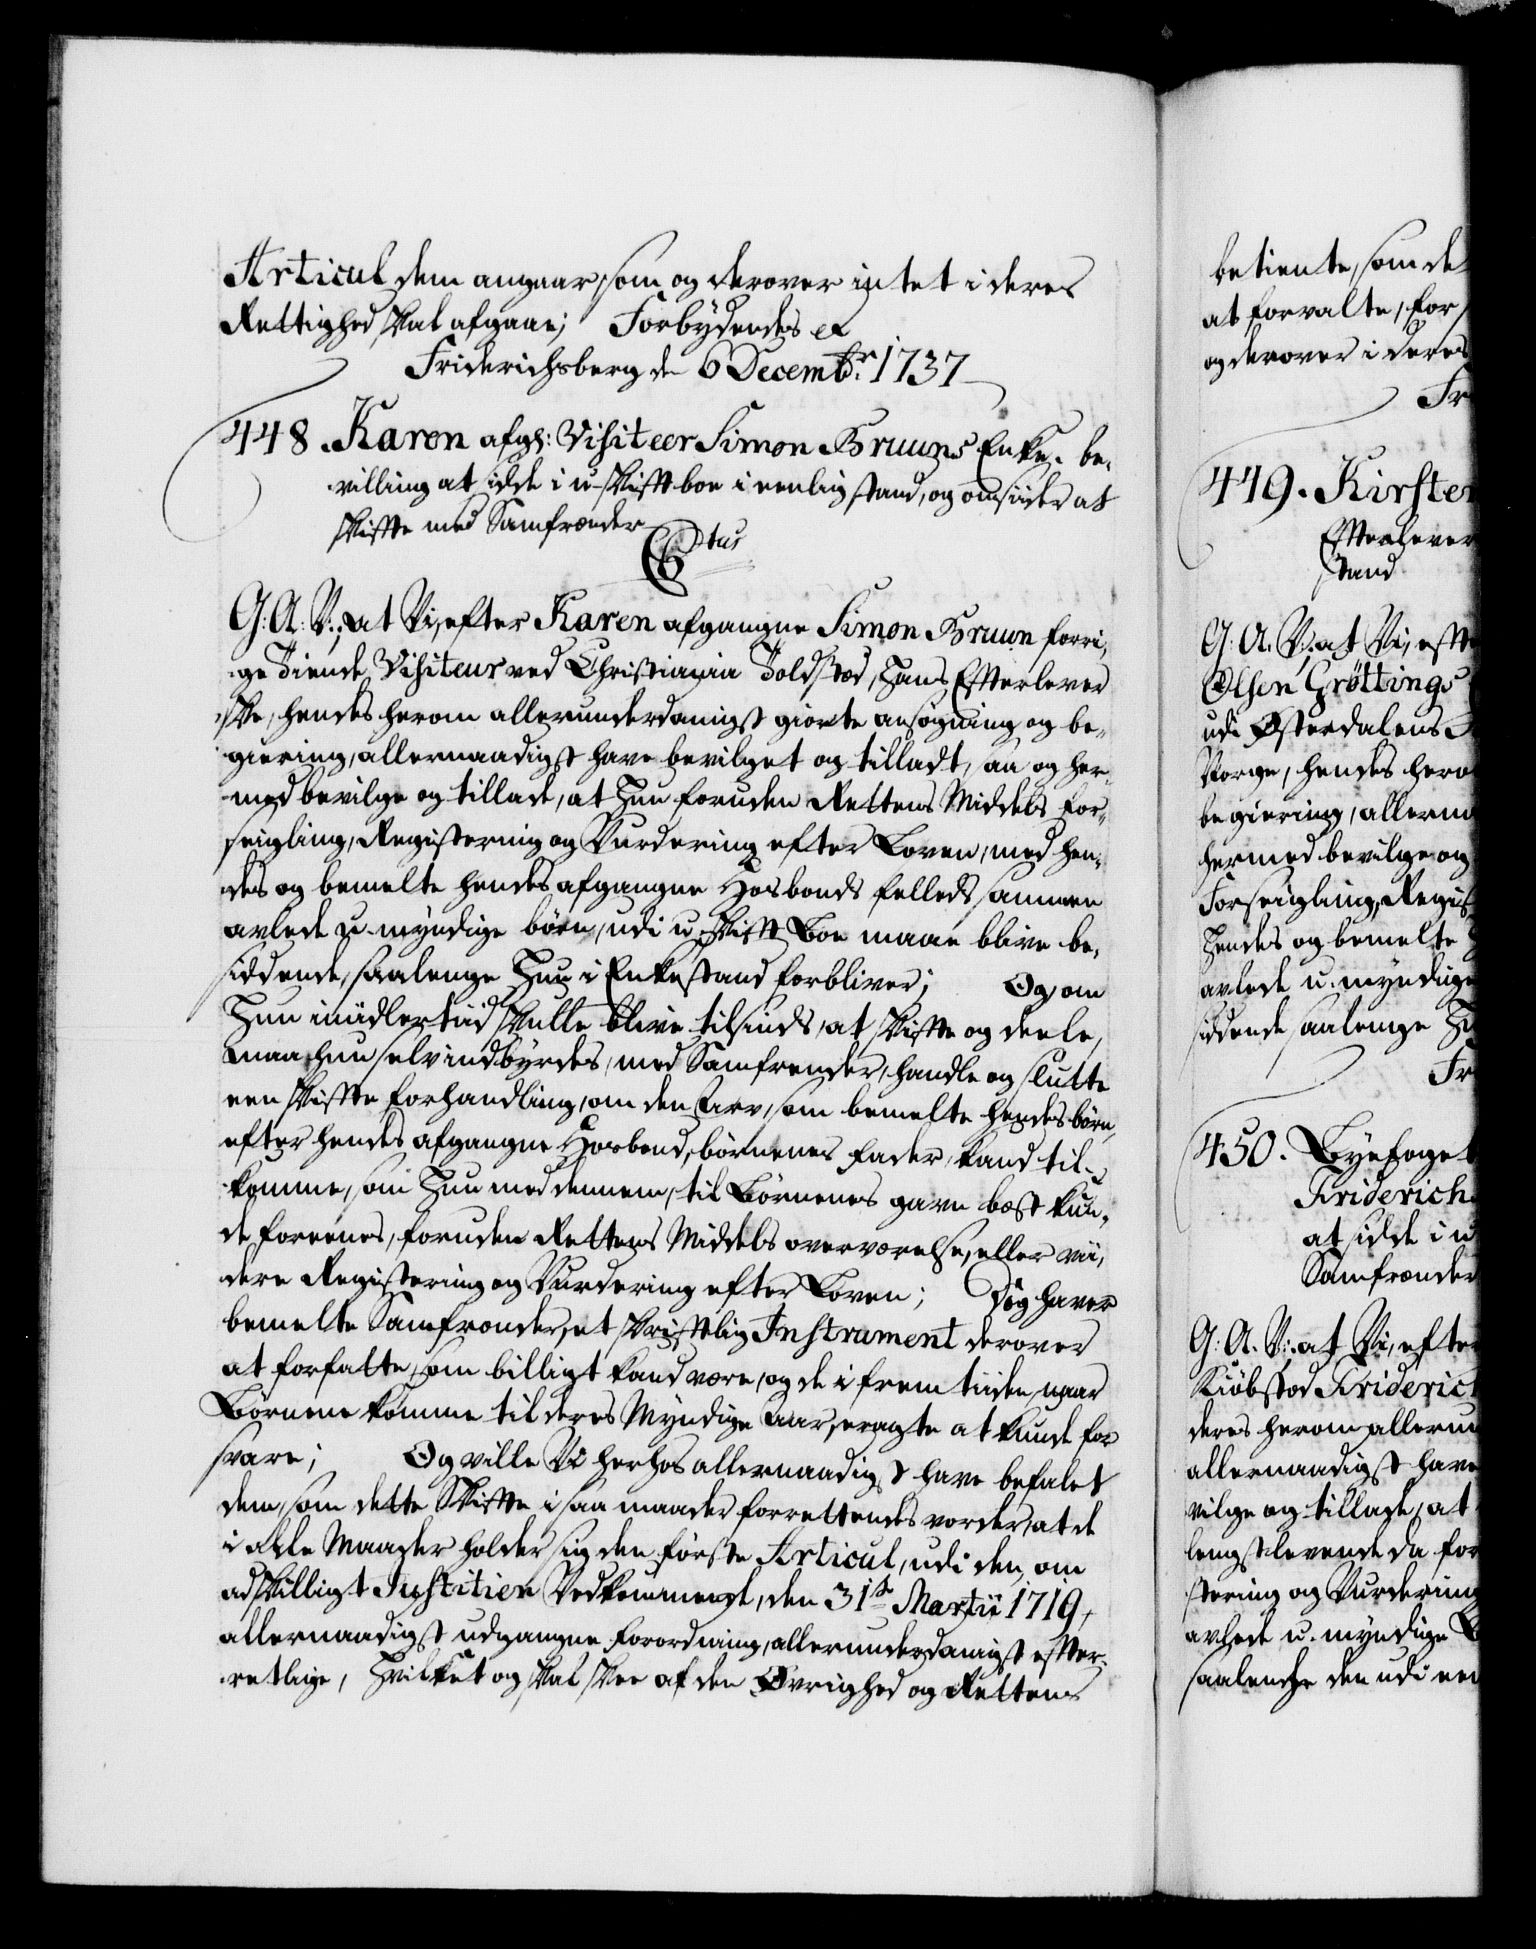 Articul dem angaar, som og derover intet i deres
Rettighed skal afgaae; Forbydendes etc
Friderichsberg de 6 Decembr: 1737
448. Karen afg: Visiteer Simon Bruuns Enke. be-
villing at sidde i u-skiftboe i eenlig stand, og omsider at
skifte med Samfrænder
Ctus
G: A: V:, at Vi, efter Karen afgangne Simon Bruun forri-
ge Tiende Visiteur ved Christiania Toldstæd, Hans Efterlever
-ske, hendes herom allerunderdanigst giorte ansøgning og be-
giering, allernaadigst have bevilget og tilladt, saa og her-
med bevilge og tillade, at Hun foruden Rettens Middels for-
seigling, Registering og Vurdering efter Loven, med hen-
des og bemelte hendes afgangne Hosbonds felleds sammen
avlede u-myndige børn, udi u-skift Boe maae blive be-
siddende, saalenge Hun i Enkestand forbliver; Og om
Hun imidlertiid skulle blive tilsinds, at skifte og deele,
maa hun selv indbyrdes, med Samfrender, handle og slutte
een skifte forhandling, om den Arv, som bemelte hendes børn,
efter hendes afgangne Hosbond, børnenes Fader, kand til-
komme, som Hun med dennem, til Børnenes gavn best kun-
de foreenes, foruden Rettens Middels overværelse, eller vii-
dere Registering og Vurdering efter Loven; Dog haver
bemelte Samfrænder, et skriftlig Instrument derover
at forfatte, som billigt kand være, og de i frem tiiden, naar
Børnene komme til deres Myndige Aar, eragte at kunde for
svare; Og ville Vi herhos allernaadigst have befalet
dem, som dette Skifte i saa maader forrettendes vorder, at de
i alle Maader holder sig den første Articul, udi den, om
adskilligt Justitien Vedkommende, den 31te Martii 1719,
allernaadigst udgangne Forordning, allerunderdanigst efter-
rettlige, Hvilket og skal skee af den Øvrighed og Rettens
betiente, som de
at forvalte, for
og derover i deres
Fr
449. Kirsten
Efterlever
stand
G: A: V: at Vi, efte
Olsen Grøttings
udi Østerdalens
Norge, hendes hero
begiering, allerna
hermed bevilge og
Forseigling, Regis
Hendes og bemelte
avlede u-myndige
siddende saalenge Hu
Fr
450. Byefoget
Friderich
at sidde i u
Samfrænder
G: A: V: at Vi, efter
Kiøbstæd Frideric
deres herom allerun
allernaadigst have
vilge og tillade, at
lengstlevende da for
stering og Vurdering
avlede u-myndige B
saalenge den udi een